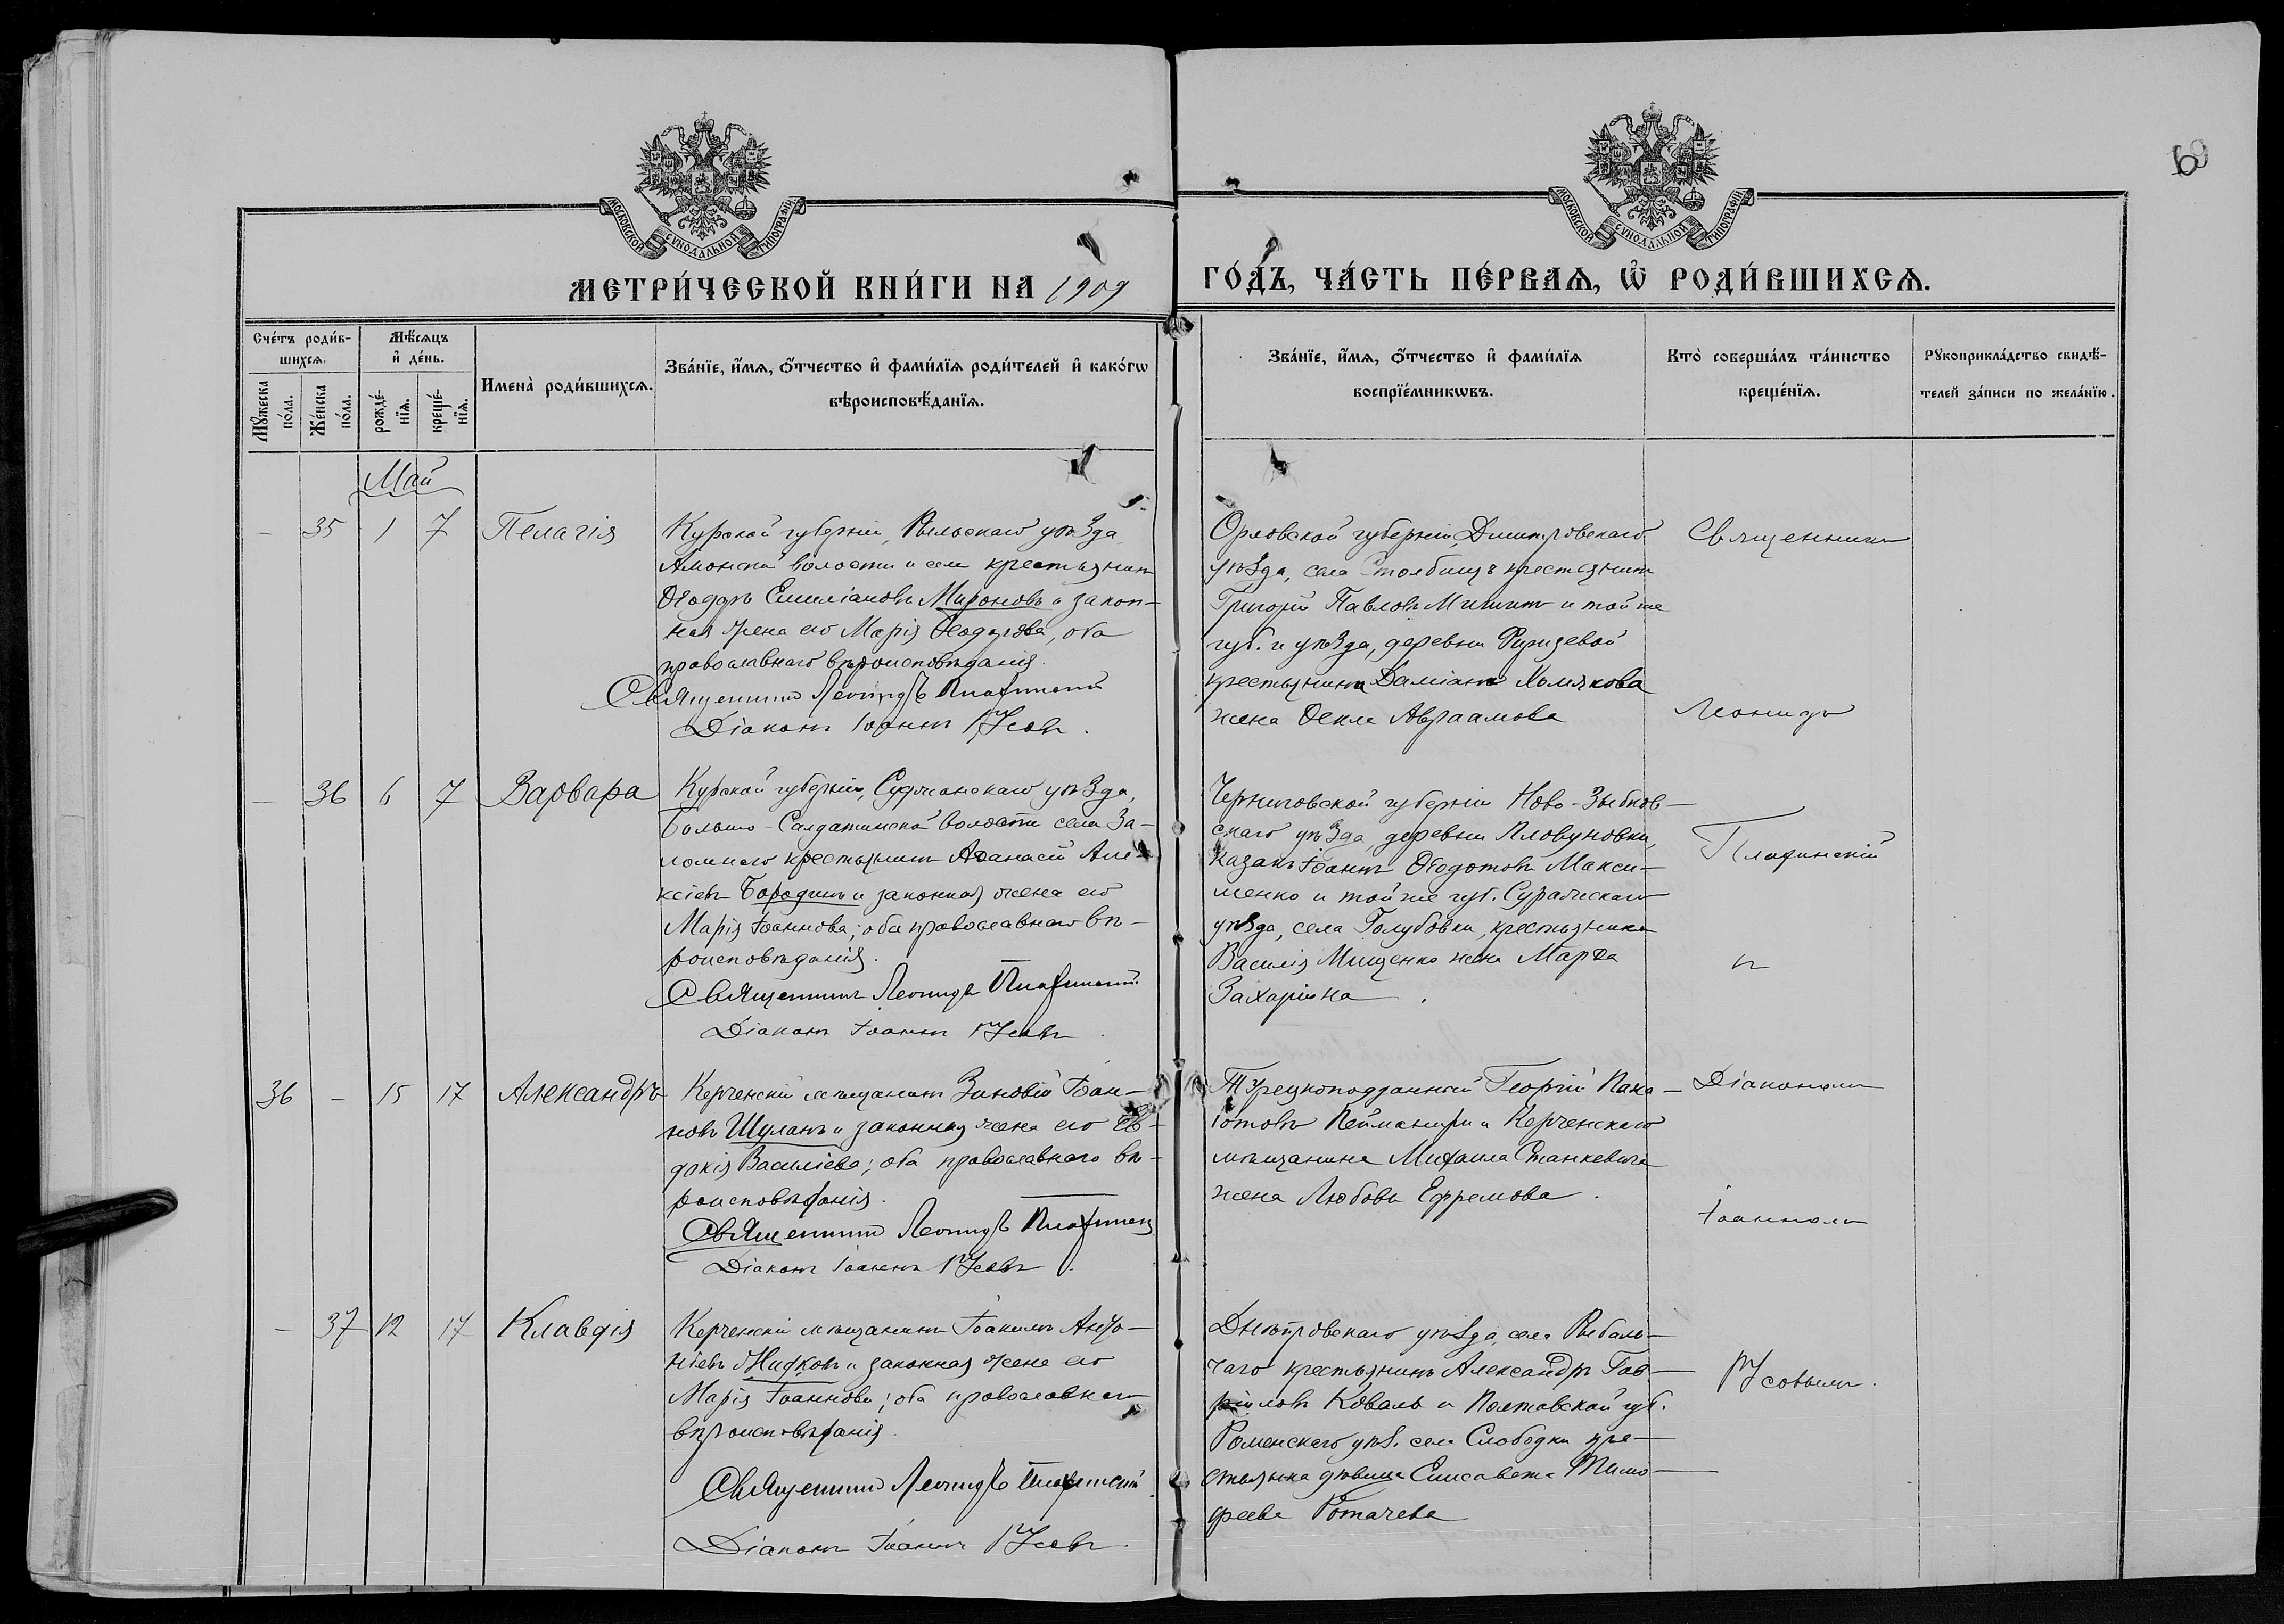 69
МОСКОВСКОЙ СУНОДАЛЬНОЙ ТИПОГРАФІИ
МОСКОВСКОЙ СУНОДАЛЬНОЙ ТИПОГРАФІИ
МЕТРИ́ЧЕСКОЙ КНИ́ГИ НА 1909
ГО́ДЪ, ЧА́СТЬ ПЕ́РВАѦ, Ѿ РОДИ́ВШИХСѦ.
Сче́тъ роди́в-
шихсѧ.
Мꙋ́жеска по́ла.
Же́нска по́ла.
Мѣ́сѧцъ
и҆ де́нь.
рожде́-
нїѧ.
креще́-
нїѧ.
Имена̀ роди́вшихсѧ.
Зва́нїе, и҆́мѧ, ѻ҆́тчество и҆ фами́лїѧ роди́телей и҆ како́гѡ
вѣроисповѣ́данїѧ.
Зва́нїе, и҆́мѧ, ѻ҆́тчество и҆ фами́лїѧ
воспрїе́мникѡвъ.
Кто̀ соверша́лъ та́инство
креще́нїѧ.
Рꙋкоприкла́дство свидѣ́-
телей за́писи по жела́нїю.
Май
— 35 1 7 Пелагія
Курской губерніи, Рыльскаго уѣзда
Амонской волости и села крестьянинъ
Ѳеодоръ Емиліановъ Мироновъ и закон-
ная жена его Марія Ѳеодорова, оба
православнаго вѣроисповѣданія.
Священникъ Леонидъ
Діаконъ Іоаннъ Усовъ.
Орловской губерніи, Димитровскаго
уѣзда, села Столбищъ крестьянинъ
Григорій Павловъ и той же
губ. и уѣзда, деревни
крестьянина Даміана Холякова
жена Ѳекла Авраамова
Священникъ
Леонидъ
— 36 6 7 Варвара
Курской губерніи, Суджанскаго уѣзда,
Больше-Салдатинской волости села За-
ломнаго крестьянинъ Аѳанасій Але-
ксіевъ Бородинъ и законная жена его
Марія Іоаннова; оба православнаго вѣ-
роисповѣданія.
Священникъ Леонидъ
Діаконъ Іоаннъ Усовъ
Черниговской губерніи Ново-Зыбков-
скаго уѣзда, деревни
казакъ Іоаннъ Ѳеодотовъ Макси-
менко и той же губ. Суражскаго
уѣзда, села Голубовки, крестьянина
Василія Мищенко жена Марѳа
Захаріина.
и
36 — 15 17 Александръ
Керченскій мѣщанинъ Зиновій Іоан-
новъ Шуланъ и законная жена его Ев-
докія Василіева; оба православнаго вѣ-
роисповѣданія.
Священникъ Леонидъ
Діаконъ Іоаннъ Усовъ.
Турецкоподданный Георгій Пана-
іотовъ и Керченскаго
мѣщанина Михаила Станкевича
жена Любовь Ефремова.
Діакономъ
Іоанномъ
— 37 12 17 Клавдія
Керченскій мѣщанинъ Іоакимъ Анто-
ніевъ Жидковъ и законная жена его
Марія Іоаннова; оба православнаго
вѣроисповѣданія.
Священникъ Леонидъ
Діаконъ Іоаннъ Усовъ.
Днѣпровскаго уѣзда, села Рыбаль-
чаго крестьянинъ Александръ Гав-
ріиловъ Коваль и Полтавской губ.
Роменскаго уѣз. села Слободки кре-
стьянка дѣвица Елисавета Тимо-
феева Ротачева
Усовымъ.